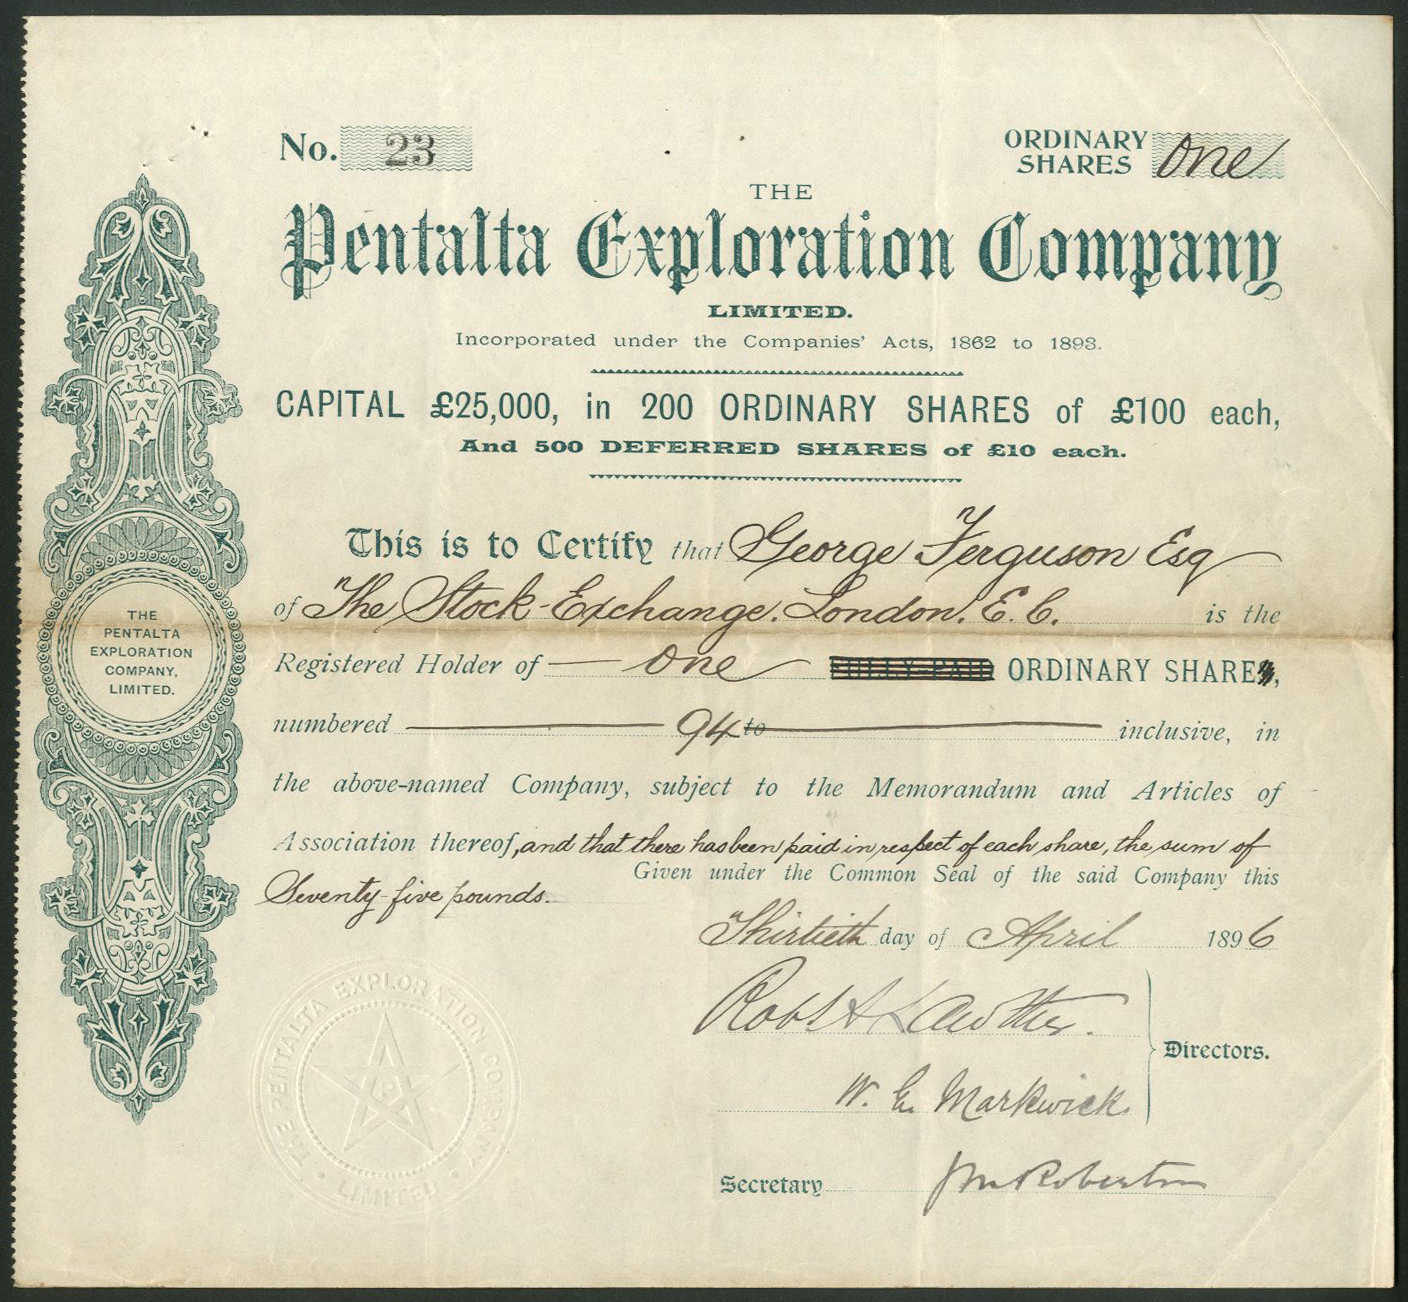 No. 23
ORDINARY SHARES One
THE
Pentalta Exploration Company
LIMITED.
Incorporated under the Companies' Acts, 1862 to 1893.
CAPITAL £25,000, in 200 ORDINARY SHARES of £100 each,
And 500 DEFERRED SHARES of £10 each.
This is to Certify that George Ferguson Esq
of The Stock Exchange. London. E. C. is the
Registered Holder of One FULLY PAID ORDINARY SHARES,
numbered 94 to inclusive, in
the above-named Company, subject to the Memorandum and Articles of
Association thereof, and that there has been paid in respect of each share, the sum of
Seventy-five pounds.
Given under the Common Seal of the said Company this
Thirtieth day of April 1896
Robt
Directors.
W. E. Markwick
Secretary Robertson
THE
PENTALTA
EXPLORATION
COMPANY,
LIMITED.
THE PENTALTA EXPLORATION COMPANY
LIMITED